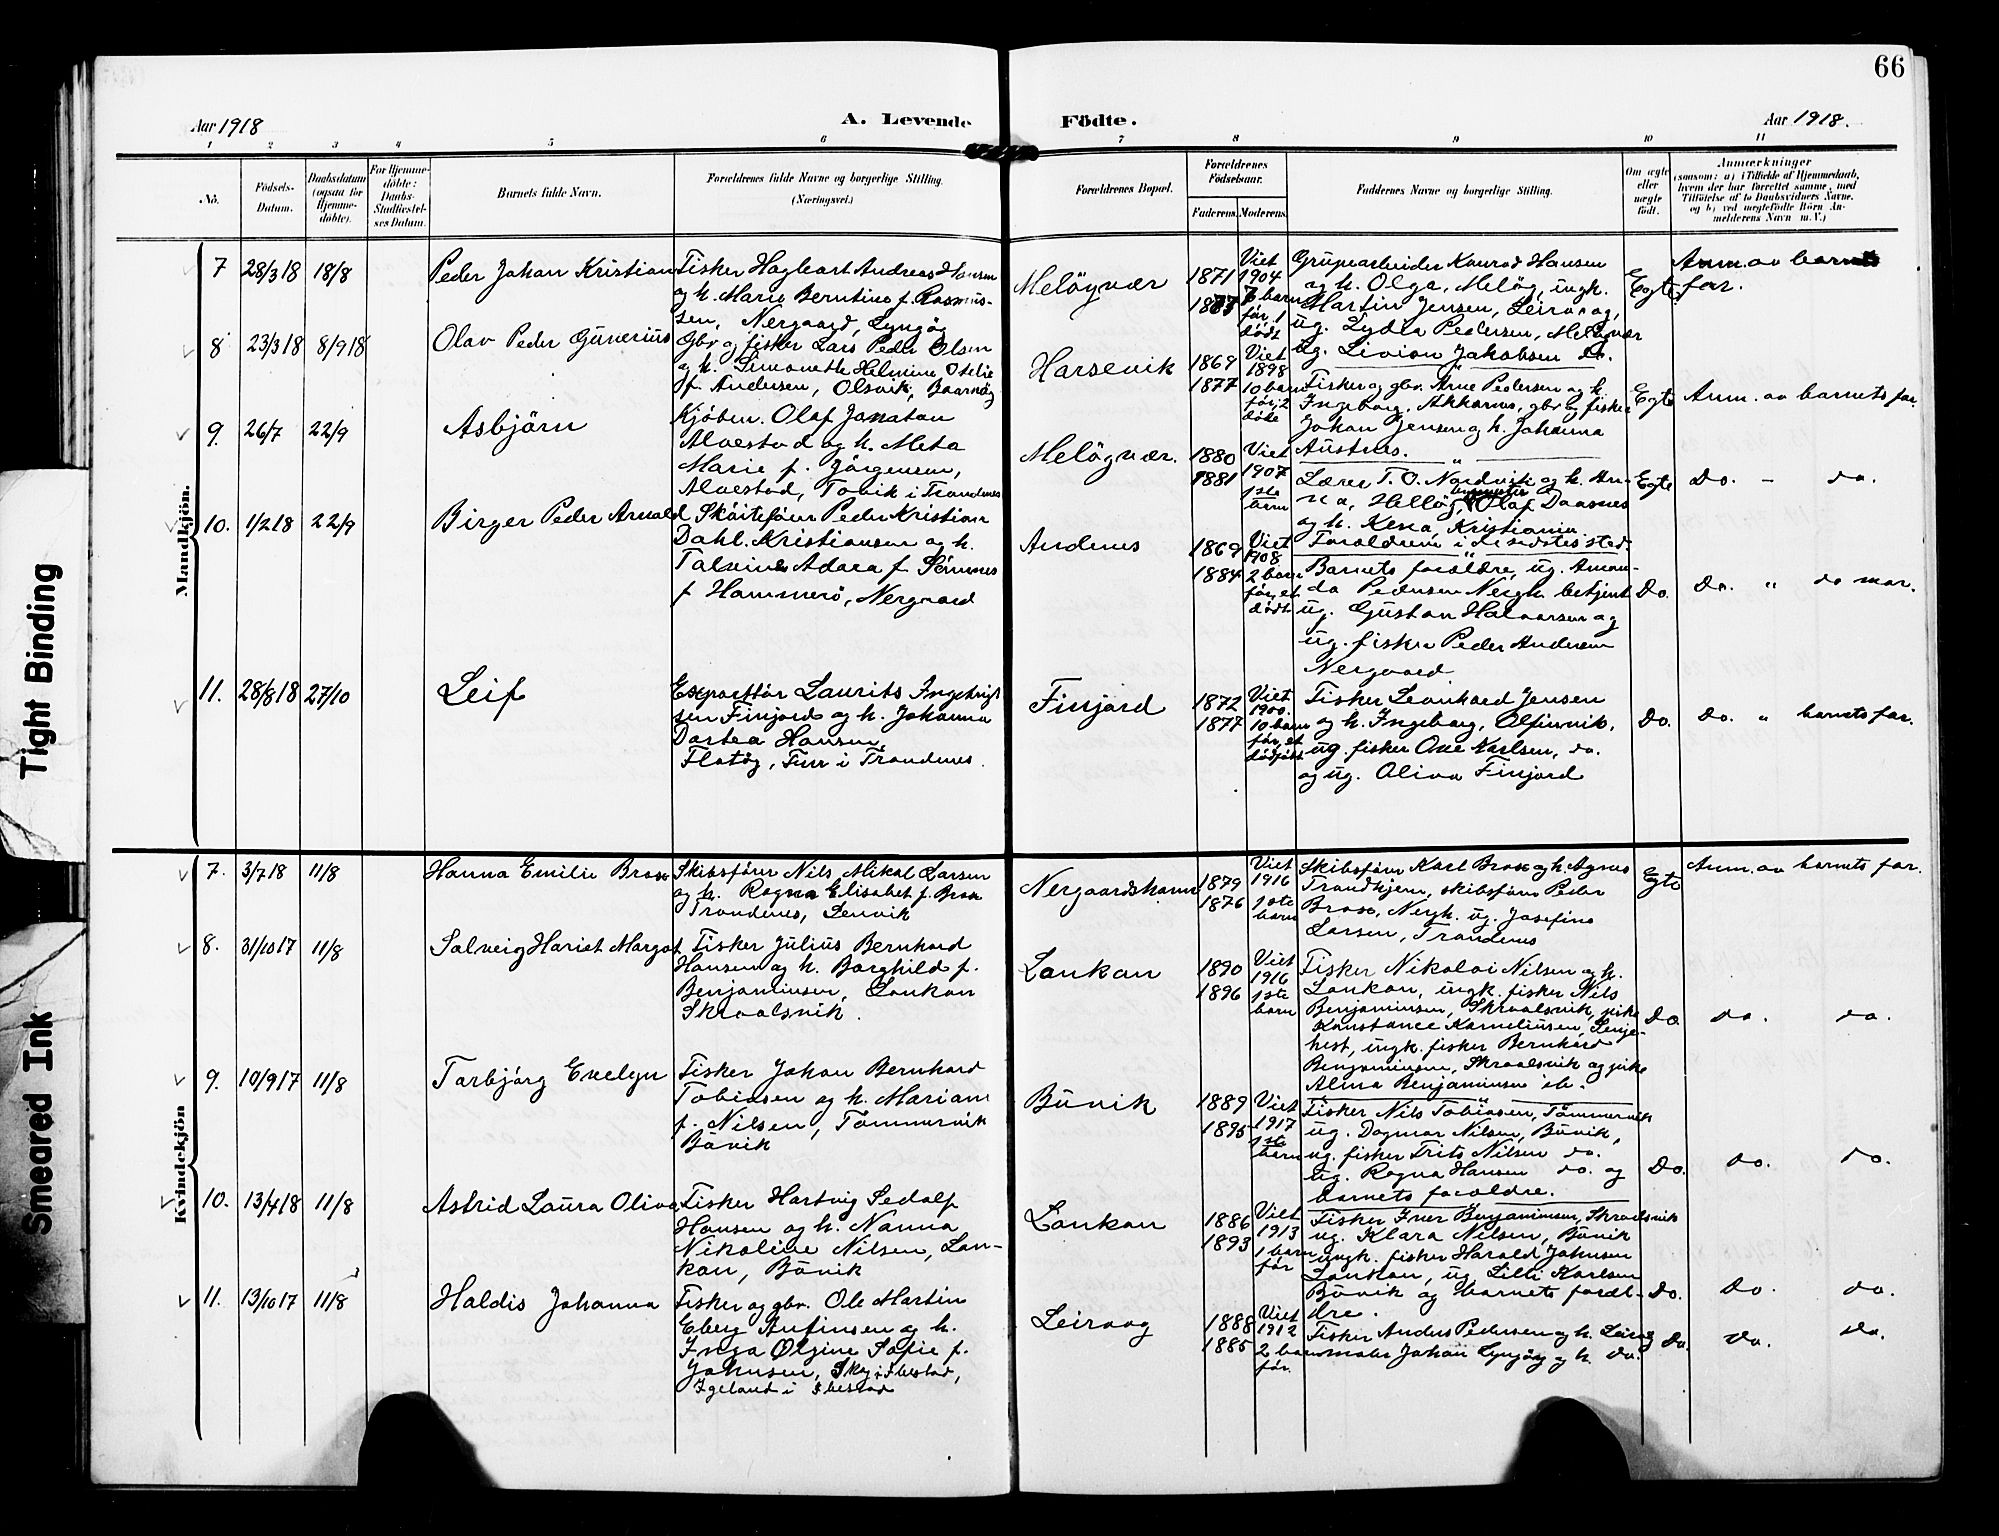 66
Aar 1918
A. Levende
Födte.
Aar 1918.
1 2 3 4 5 6 7 8 9 10 11
No.
Födsels-
Datum.
Daabsdatum
(ogsaa for
Hjemme-
döbte).
For Hjemme-
döbte:
Daabs-
Stadfæstel-
ses Datum.
Barnets fulde Navn.
Forældrenes fulde Navne og borgerlige Stilling.
(Næringsvei.)
Forældrenes Bopæl.
Forældrenes
Födselsaar.
Faderens. Moderens.
Faddernes Navne og borgerlige Stilling.
Om ægte
eller
uægte
födt.
Anmærkninger
(saasom: a) i Tilfælde af Hjemmedaab,
hvem der har forrettet samme, med
Tilföielse af to Daabsvidners Navne.
og b) ved uægtefödte Börn An-
melderens Navn m. V.)
Mandkjön.
7 28/3 18 18/8
Peder Johan Kristian
Fisker Hagbart Andreas Hansen
og h. Marie Berntine f. Rasmus-
sen, Nergaard, Lyngöy
Melöyvær
1871
Viet
1904
7 barn
før, 1
dödt
Grupearbeider Konrad Hansen
og h. Olga, Melöy, ungk.
Martin Jensen, Leirvaag,
ug. Lydia Pedersen, Melöyvær
ug. Livion Jakobsen do.
Egte
Anm. av barnets
far.
8 23/3 18 8/9 18
Olav Peder Gunerius
Gbr og fisker Lars Peder Olsen
og h. Simonette Helmine Otelie
f. Andersen, Olsvik, Baarnöy
Harsevik
1869
1877
Viet
1898
10 barn
før, 2
döde
Fisker og gbr. Arne Pedersen og h.
Ingeborg, Akkarnes, gbr og fisker
Johan Jensen og h. Johanna
Austnes.
Egte
Anm. av barnets far.
9. 26/7 22/9
Asbjörn
Kjöbm. Olaf Jonatan
Alvestad og h. Meta
Marie f. Jörgensen,
Alvestad, Tovik i Trondenes
Melöyvær.
1880
1881
Viet
1907
1ste
barn
Lærer T. O. Nordvik og h. An-
na, Hellöy, Olaf Daasnes
og h. Kena, Kristiania
Forældrene i sidstes sted.
Egte
Do. - do.
10. 1/2 18 22/9
Birger Peder Arnold
Sköitefører Peder Kristian
Dahl. Kristiansen og h.
Talvine Adara f. Sömnes
f. Hammerö, Nergaard
Andenes
1869
1884
Viet
1908
2 barn
før, et
dödt
Barnets forældre, ug. Aman-
da Pedersen Nergh. betjent
ug. Gustav Halvorsen og
ug. fisker Peder Andersen
Nergaard
Do.
Do. " do mor.
11. 28/8 18 27/10
Leif
Exportör Laurits Ingebrigt
sen Finjord og h. Johanna
Dortea Hansen,
Flatöy, Finn i Trondenes.
Finjord
1872
1877
Viet
1900.
10 barn
før, et
dödfödt
Fisker Leonhard Jensen
og h. Ingeborg, Olfinvik,
ug. fisker Ove Karlsen, do.
og ug. Oliva Finjord
Do.
Do. " barnets far.
Kvindekjön
7. 3/7 18 11/8
Hanna Emilie Brox
Skibsfører Nils Mikal Larsen
og h. Ragna Elisabet f. Brox
Trondenes, Senvik
Nergaardshamn
1879
1876
Viet
1916
1ste
barn
Skibsfører Karl Brox og h. Agnes
Trondhjem, skibsfører Peder
Brox, Nergh. ug. Josefine
Larsen, Trondenes
Egte
Anm. av barnets far.
8. 31/10 17 11/8
Solveig Hariet Margot
Fisker Julius Bernhard
Hansen og h. Borghild f.
Benjaminsen, Lankan
Skraalsvik.
Lankan
1890
1896
Viet
1916
1ste
barn
Fisker Nikolai Nilsen og h.
Lankan, ungk. fisker Nils
Benjaminsen, Skroalsvik, pike
Konstance Korneliusen, Senje-
hest, ungk. fisker Bernhard
Benjaminsen, Skroalsvik og pike
Alma Benjaminsen ib.
Do
Do. do.
9. 10/9 17 11/8
Torbjörg Evelyn
Fisker Johan Bernhard
Tobiasen og h. Mariane
f. Nilsen, Tömmervik
Büvik
Büvik
1889
1895
Viet
1917
1ste
barn
Fisker Nils Tobiasen, Tömmervik
ug. Dagmar Nilsen, Büvik,
ug. fisker Frits Nilsen do.
ug. Ragna Hansen do. og
barnets forældre.
Do.
Do. do.
10. 13/4 18 11/8
Astrid Laura Oliva
Fisker Hartvig Sedolf
Hansen og h. Nanna
Nikoline Nilsen, Lan-
kan, Büvik
Lankan
1886
1893
Viet
1913
1 barn
før
Fisker Iver Benjaminsen, Skroalsvik
ug. Klara Nilsen, Büvik
ungk. fisker Harald Johnsen
Lankan, ug. Lilli Karlsen
Büvik og barnets foræl-
dre.
Do.
Do. do.
11. 13/10 17 11/8
Haldis Johanna
Fisker og gbr. Ole Martin
Eberg Anfinsen og h.
Inga Olgine Sofie f.
Johnsen, Skog i Ibestad,
Igeland i Ibestad
Leirvaag
1888
1885
Viet
1912
2 barn
før.
Fisker Anders Pedersen og h. Leirvaag
maler Johan Lyngöy og h. do.
Do.
Do. Do.
Tight Binding
Smeared Ink